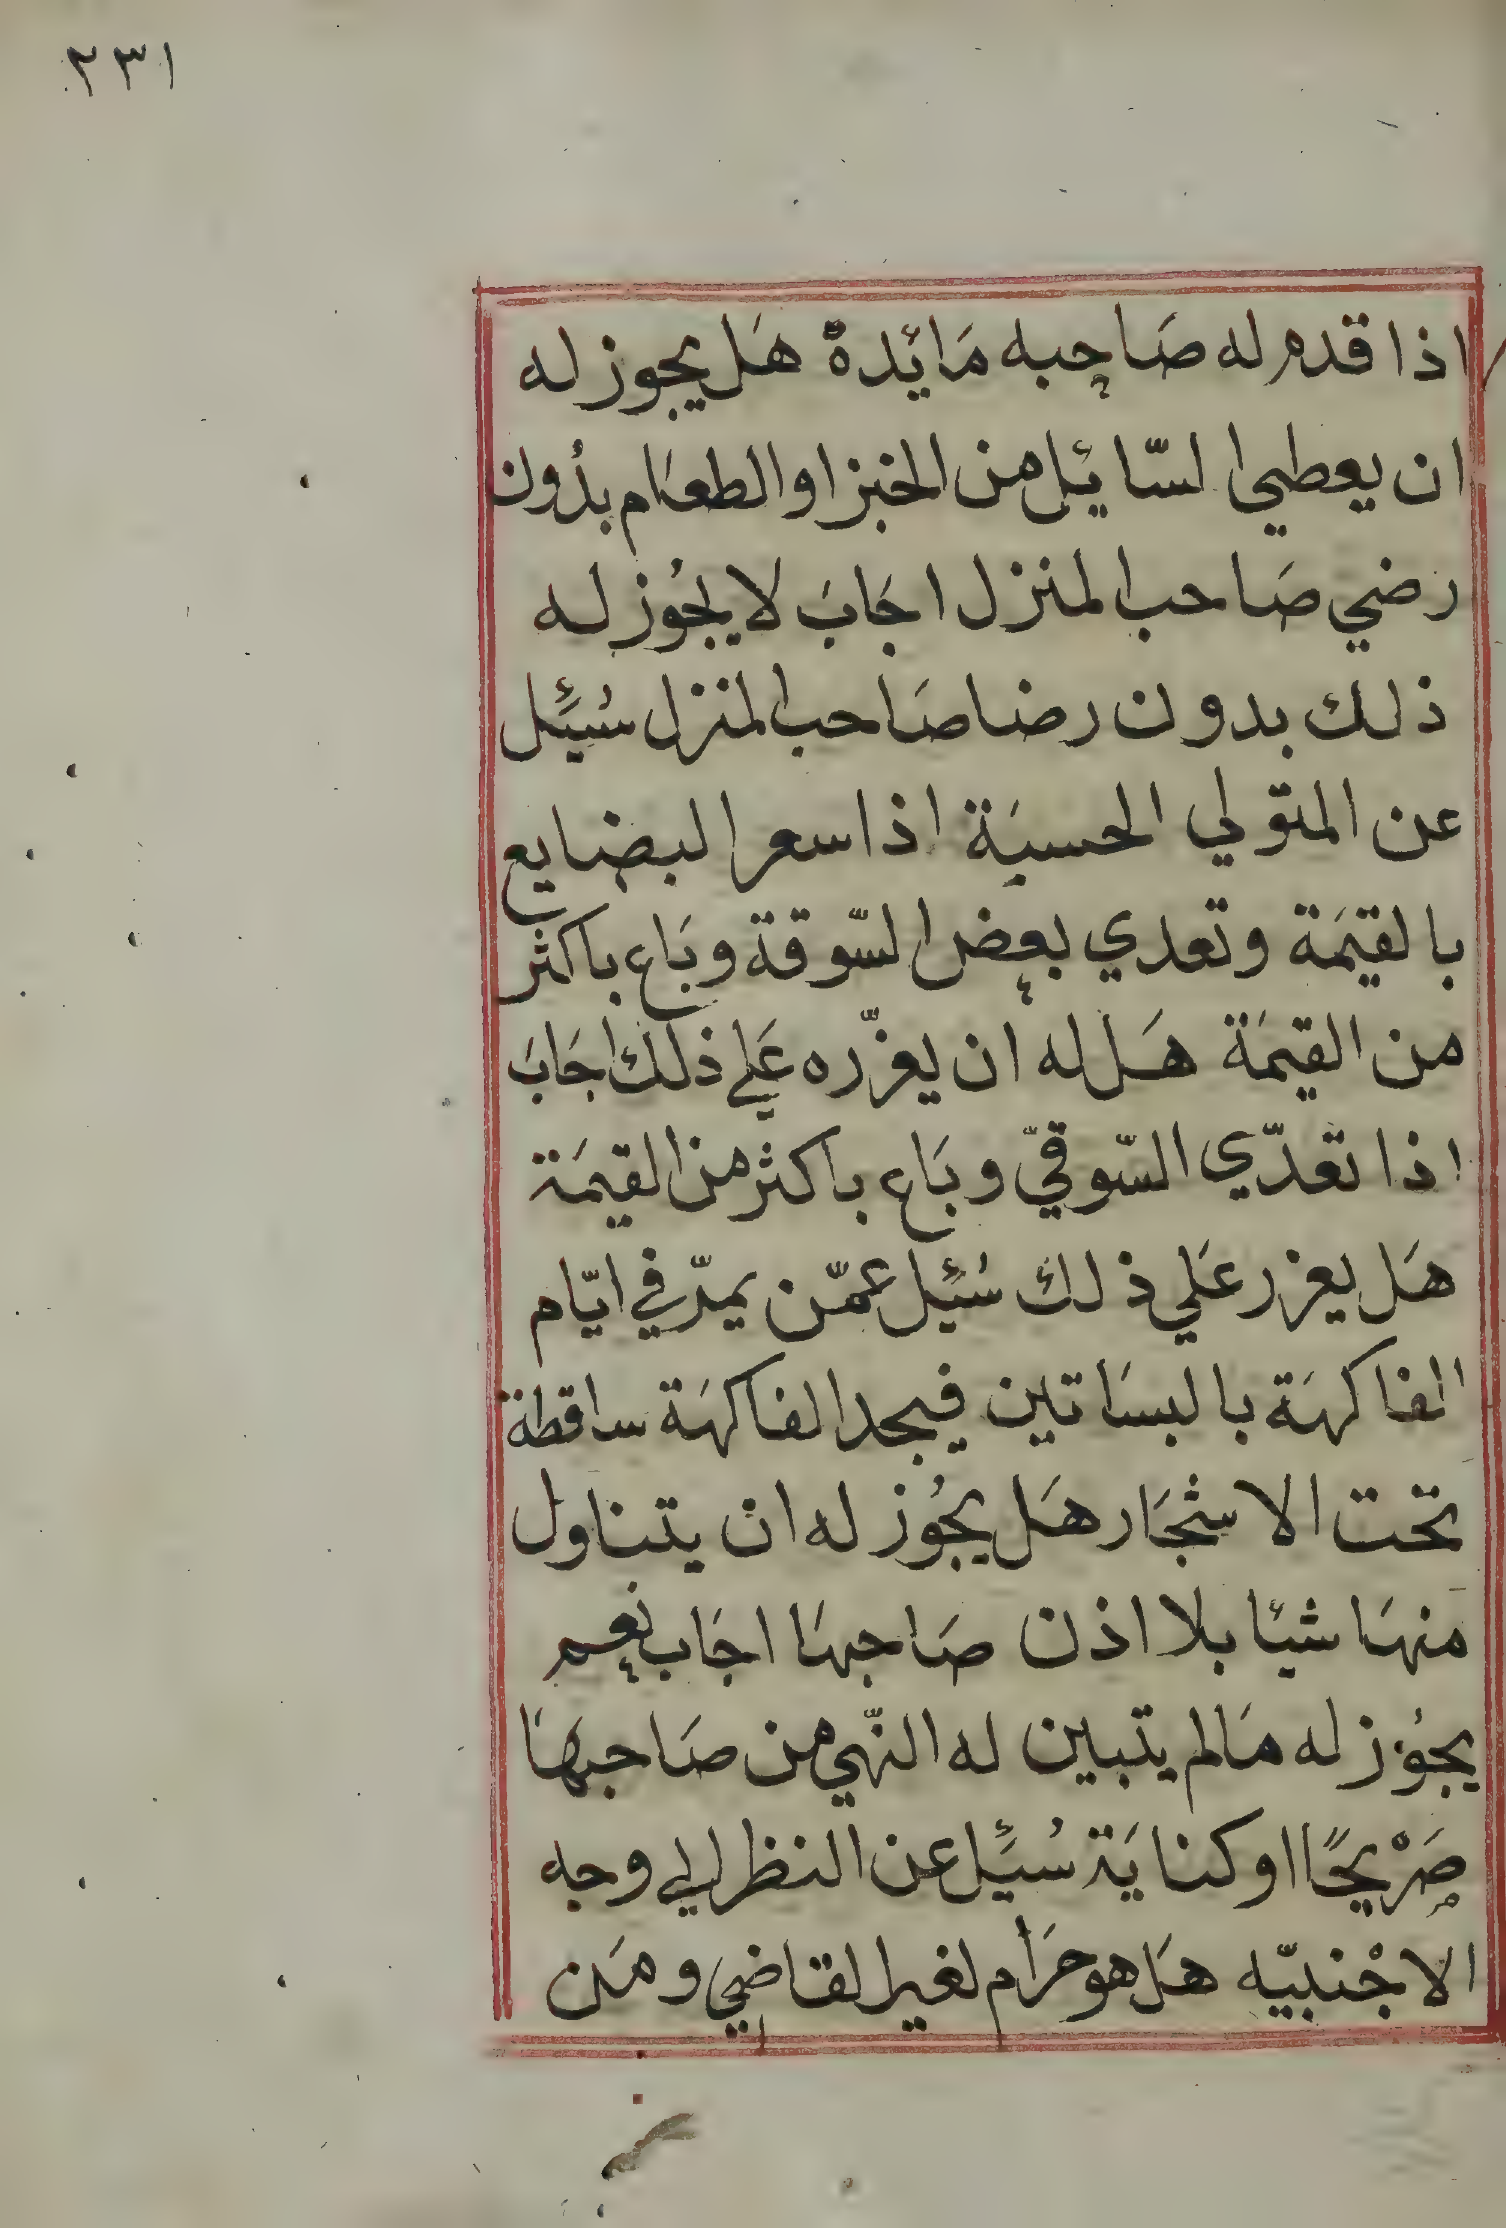 ٢٣١
اذا قدم له صَاحبه مَائدة هَل يجوز له
ان يعطي السّائِل من الخبز او الطعَام بدُون
رضي صَاحب المنزل اجَابَ لا يجُوز له
ذلك بدون رضا صَاحب المنزل سُئِل
عن المتولي الحسبَة اذا سعر البضايع
بالقيمَة وتعدي بعض السّوقة وبَاع باكثر
من القيمَة هَل له ان يعزّره عَلي ذلك اجَابَ
اذا تعدّي السّوقيّ وبَاع باكثر من القيمَة
هَل يعزر عَلي ذلك سُئِل عمّن يمرّ في ايّام
الفاكهَة بالبسَاتين فيجد الفاكهَة ساقطة
تحت الاشجَار هَل يجُوز له ان يتناول
منهَا شيئا بلا اذن صَاحبهَا اجَاب نعم
يجُوز له مَالم يتبين له النّهي من صَاحبهَا
صَرْيحًا او كنايَة سُئِل عن النظر الي وجه
الاجْنبيّه هَل هو حرَام لغير القاضي ومَن